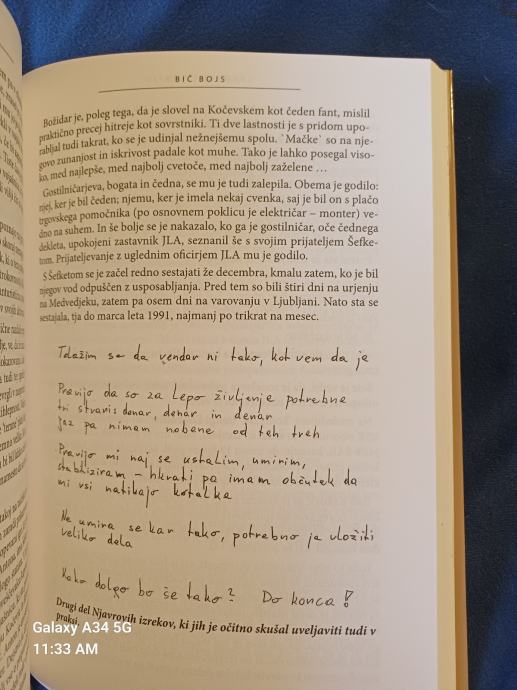 BIČ BOJS
Božidar je, poleg tega, da je slovel na Kočevskem kot čeden fant, mislil
praktično precej hitreje kot sovrstniki. Ti dve lastnosti je s pridom upo-
rabljal tudi takrat, ko se je udinjal nežnejšemu spolu. `Mačke` so na nje-
govo zunanjost in iskrivost padale kot muhe. Tako je lahko posegal viso-
ko, med najlepše, med najbolj cvetoče, med najbolj zaželene …
Gostilničarjeva, bogata in čedna, se mu je tudi zalepila. Obema je godilo:
njej, ker je bil čeden; njemu, ker je imela nekaj cvenka, saj je bil on s plačo
trgovskega pomočnika (po osnovnem poklicu je električar – monter) ve-
dno na suhem. In še bolje se je nakazalo, ko ga je gostilničar, oče čednega
dekleta, upokojeni zastavnik JLA, seznanil še s svojim prijateljem Šefke-
tom. Prijateljevanje z uglednim oficirjem JLA mu je godilo.
S Šefketom se je začel redno sestajati že decembra, kmalu zatem, ko je bil
njegov vod odpuščen z usposabljanja. Pred tem so bili štiri dni na urjenju
na Medvedjeku, zatem pa osem dni na varovanju v Ljubljani. Nato sta se
sestajala, tja do marca leta 1991, najmanj po trikrat na mesec.
Tolažim se da vendar ni tako, kot vem da je
Pravijo da so za lepo življenje potrebne
tri stvari: denar, denar in denar
jaz pa nimam nobene od teh treh
Pravijo mi naj se ustalim, umirim,
stabiliziram – hkrati pa imam občutek da
mi vsi natikajo kotalke
Ne umira se kar tako, potrebno je vložiti
veliko dela
Kako dolgo bo še tako? Do konca!
Drugi del Njavrovih izrekov, ki jih je očitno skušal uveljaviti tudi v
praksi.
Galaxy A34 5G
11:33 AM